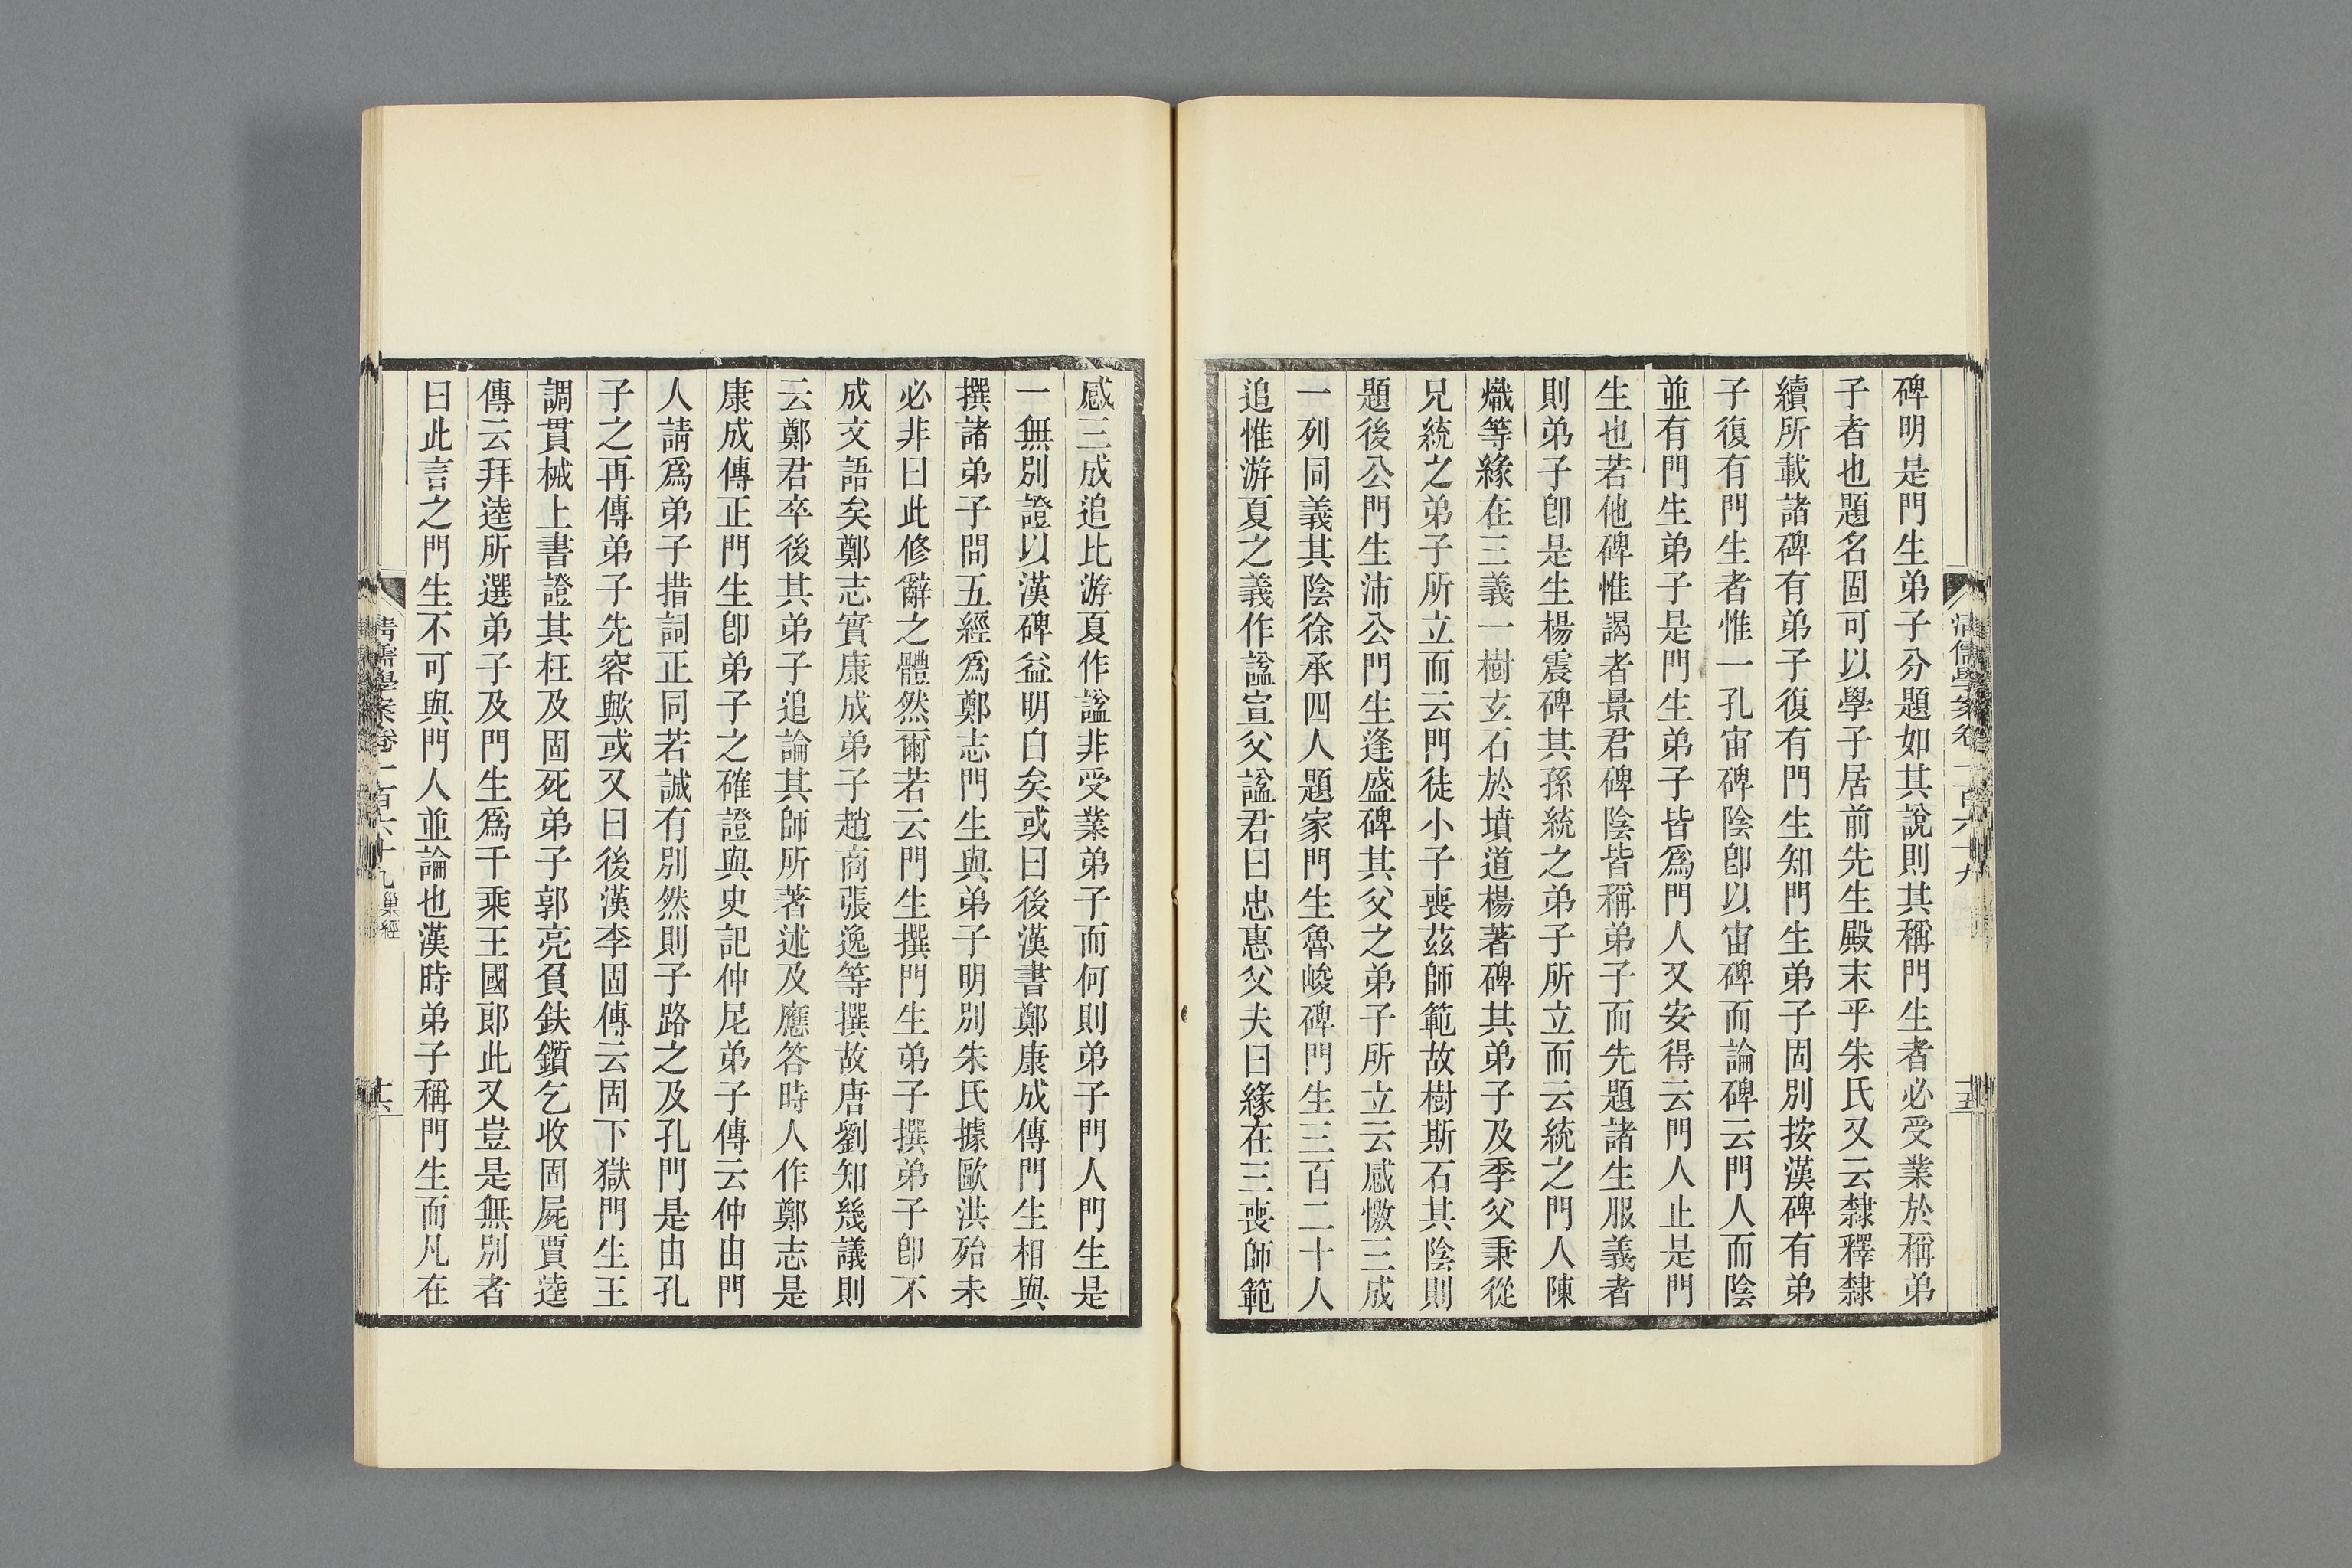 碑明是門生弟子分題如其說則其稱門生者必受業於稱弟
子者也題名固可以學子居前先生殿末乎朱氏又云隸釋隸
續所載諸碑有弟子復有門生知門生弟子固別按漢碑有弟
子復有門生者惟一孔宙碑陰卽以宙碑而論碑云門人而陰
並有門生弟子是門生弟子皆爲門人又安得云門人止是門
生也若他碑惟謁者景君碑陰皆稱弟子而先題諸生服義者
則弟子卽是生楊震碑其孫統之弟子所立而云統之門人陳
熾等緣在三義一樹玄石於墳道楊著碑其弟子及季父秉從
兄統之弟子所立而云門徒小子喪茲師範故樹斯石其陰則
題後公門生沛公門生逢盛碑其父之弟子所立云感慇三成
一列同義其陰徐承四人題家門生魯峻碑門生三百二十人
追惟游夏之義作諡宣父諡君曰忠惠父夫曰緣在三喪師範
感三成追比游夏作諡非受業弟子而何則弟子門人門生是
一無別證以漢碑益明白矣或曰後漢書鄭康成傳門生相與
撰諸弟子問五經爲鄭志門生與弟子明別朱氏據歐洪殆未
必非曰此修辭之體然爾若云門生撰門生弟子撰弟子卽不
成文語矣鄭志實康成弟子趙商張逸等撰故唐劉知幾議則
云鄭君卒後其弟子追論其師所著述及應答時人作鄭志是
康成傳正門生卽弟子之確證與史記仲尼弟子傳云仲由門
人請爲弟子措詞正同若誠有別然則子路之及孔門是由孔
子之再傳弟子先容歟或又曰後漢李固傳云固下獄門生王
調貫械上書證其枉及固死弟子郭亮負鈇鑕乞收固屍賈逵
傳云拜逵所選弟子及門生爲千乘王國郞此又豈是無別者
曰此言之門生不可與門人並論也漢時弟子稱門生而凡在
清儒學案卷一百六十九 巢經
十六